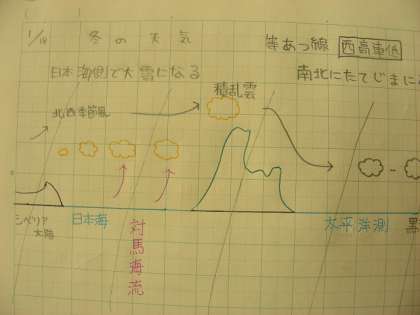 1/18 冬の天気
等あつ線 西高東低
日本海側で大雪になる
南北にたてじまに
積乱雲
北西季節風
シベリア
大陸
日本海
対馬海流
太平洋側